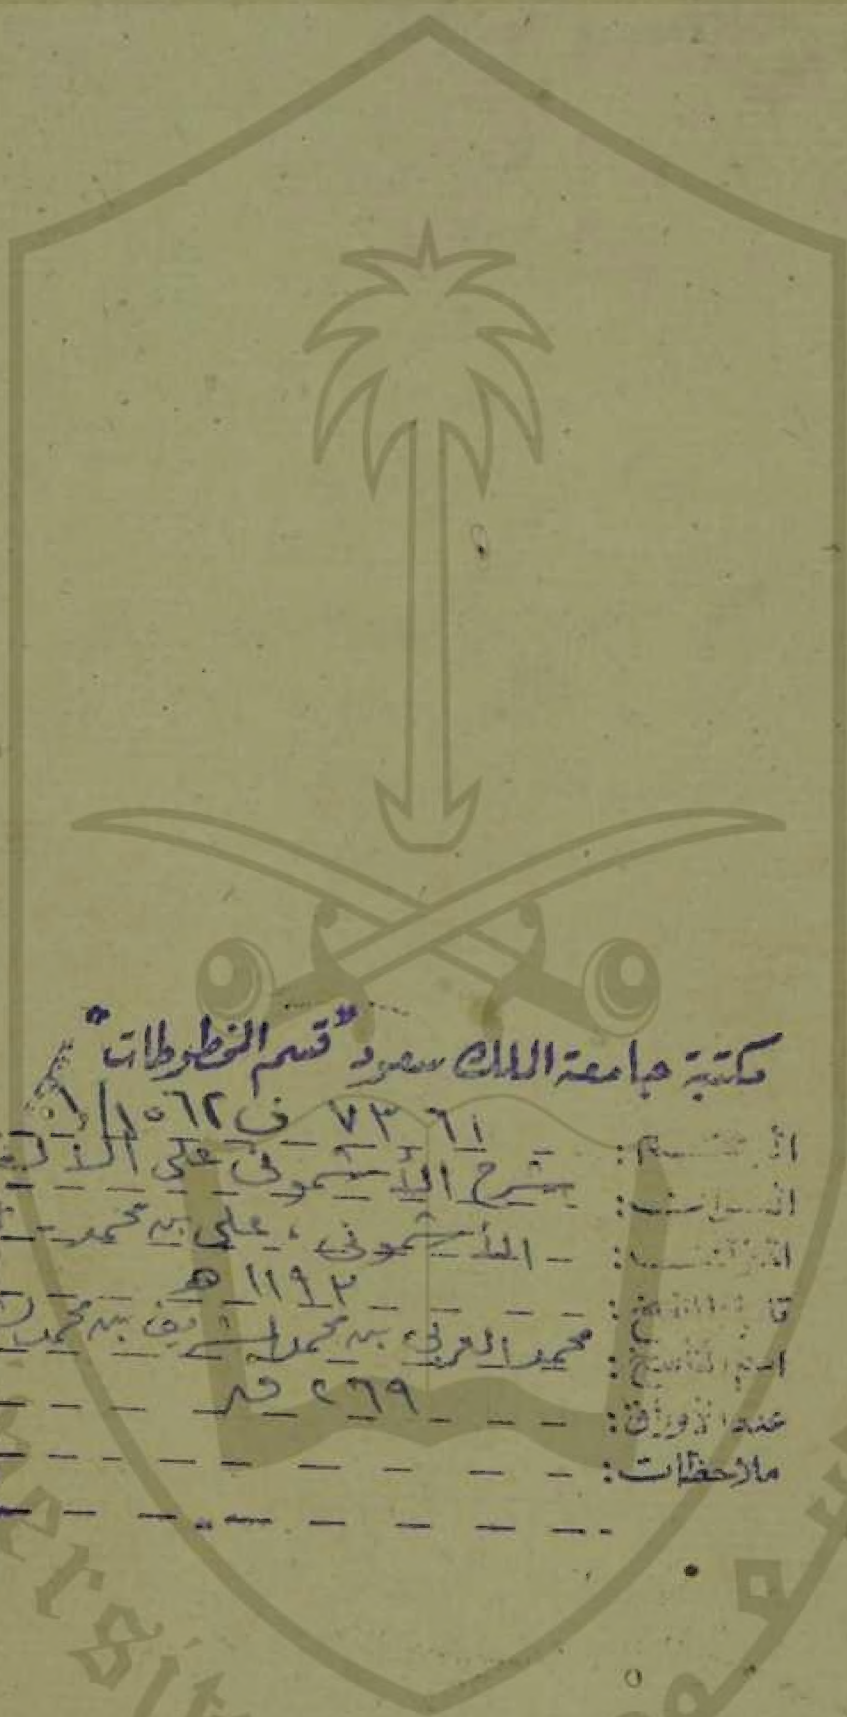 مكتبة جامعة الملك سعود "قسم المخطوطات"
الرقم: ٧٣٦١ ف ١٥٦٢ / ١
العنوان: شرح الأشموني على
المؤلف: الأشموني، علي بن محمد
تاريخ النسخ: ١١٩٣ هـ
اسم الناسخ: محمد العربي بن محمد الشريف بن محمد
عدد الأوراق: ٢٦٩ ق
ملاحظات: